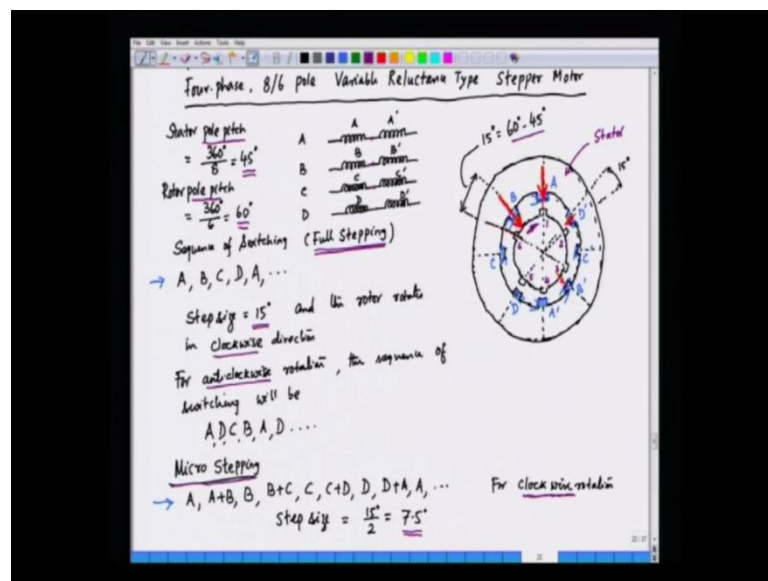 File Edit View Insert Actions Tools Help
Four-phase, 8/6 pole Variable Reluctance Type Stepper Motor
Stator pole pitch
= 360°/8 = 45°
Rotor pole pitch
= 360°/6 = 60°
A A A'
B B B'
C C C'
D D D'
15° = 60° - 45°
Stator
15°
A
B
D'
C
C'
D
B'
A'
Sequence of Switching (Full Stepping)
→ A, B, C, D, A, ...
Step size = 15° and the rotor rotates
in clockwise direction
For anticlockwise rotation, the sequence of
switching will be
A, D, C, B, A, D ....
Micro Stepping
→ A, A+B, B, B+C, C, C+D, D, D+A, A, ... For clockwise rotation
Step size = 15°/2 = 7.5°
22